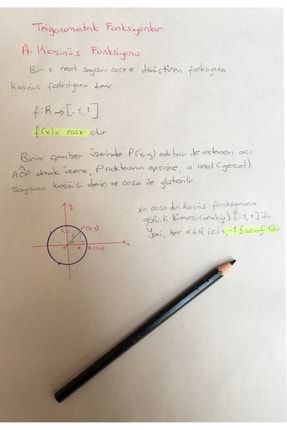 Trigonometrik Fonksiyonlar
A. Kosinüs Fonksiyonu
Bir x reel sayısını cosx e dönüştüren fonksiyona
kosinüs fonksiyonu denir.
f: R → [-1, 1]
f(x) = cosx olur
Birim çember üzerinde P(x,y) noktası ile eşlenen açı
AOP olmak üzere, P noktasının apsisine, a reel (gerçel)
sayısının kosinüsü denir ve cosa ile gösterilir.
y
P(x,y)
x
x = cosa dır. Kosinüs fonksiyonunun
görüntü kümesi [-1, 1] dir.
Yani, her a ∈ R için, -1 ≤ cosa ≤ 1 dir.